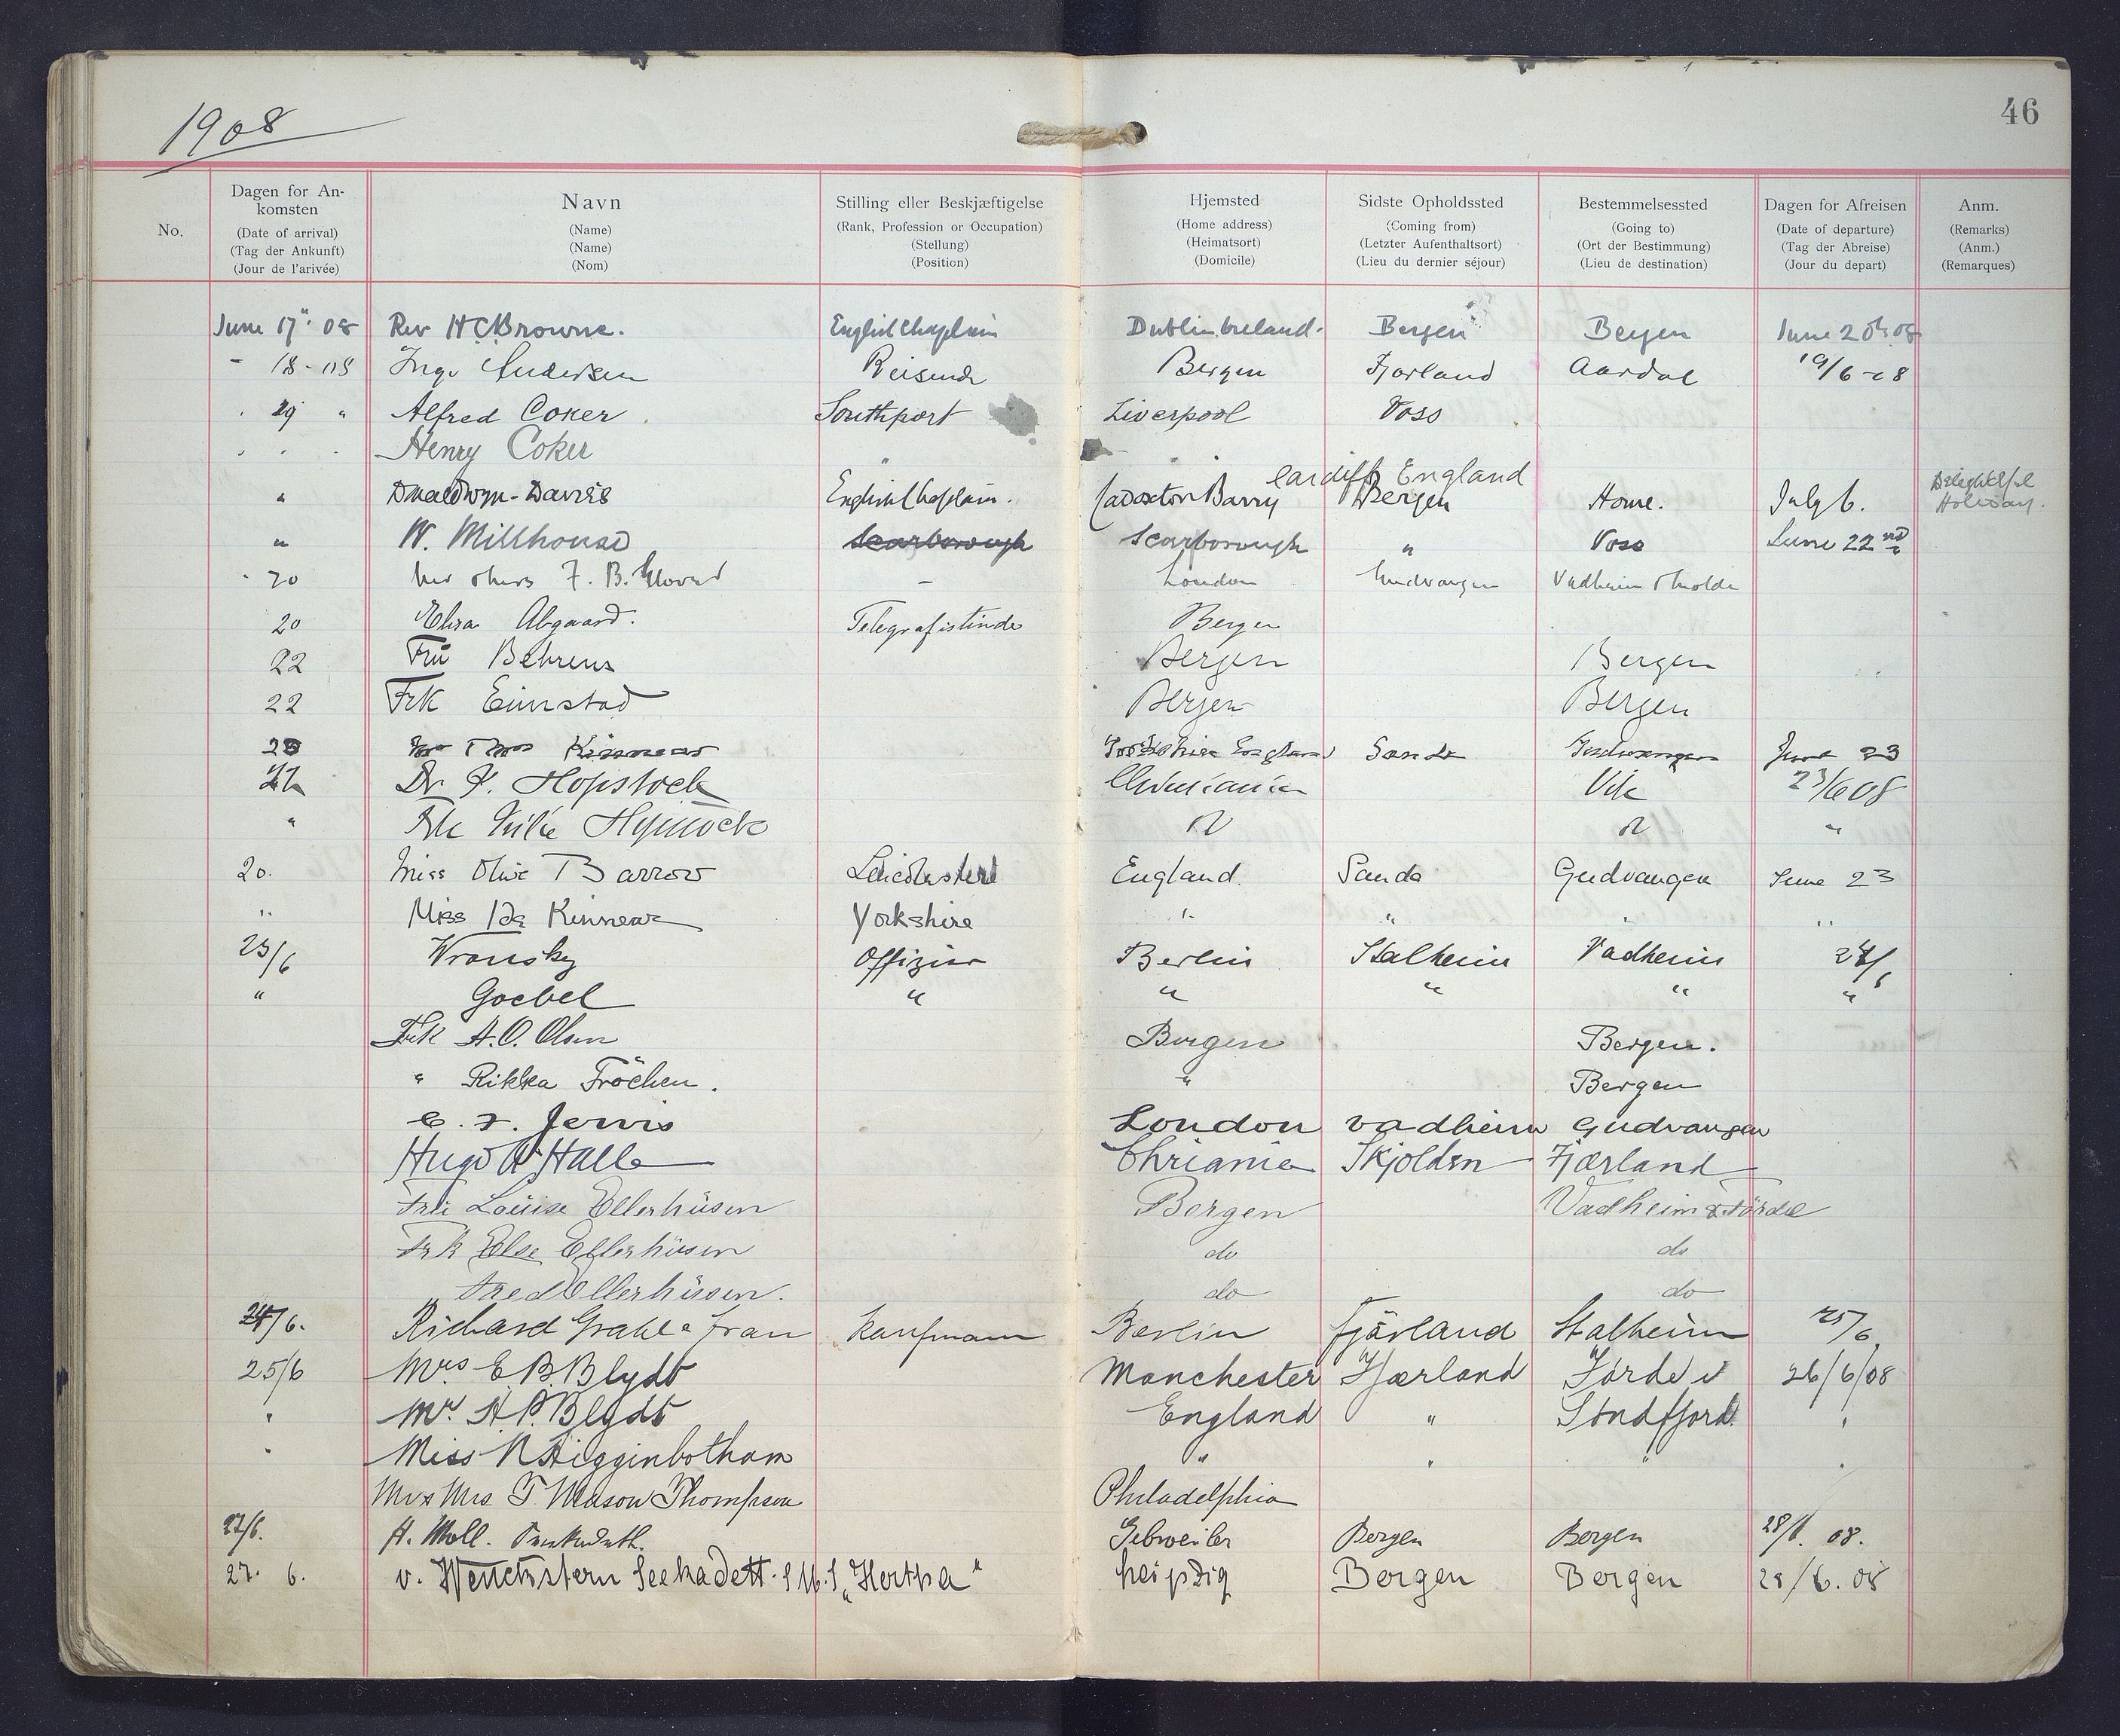 1908
46
No.
Dagen for An-
komsten
(Date of arrival)
(Tag der Ankunft)
(Jour de l'arivée)
Navn
(Name)
(Name)
(Nom)
Stilling eller Beskjæftigelse
(Rank, Profession or Occupation)
(Stellung)
(Position)
Hjemsted
(Home address)
(Heimatsort)
(Domicile)
Sidste Opholdssted
(Coming from)
(Letzter Aufenthaltsort)
(Lieu du dernier séjour)
Bestemmelsessted
(Going to)
(Ort der Bestimmung)
(Lieu de destination)
Dagen for Afreisen
(Date of departure)
(Tag der Abreise)
(Jour du depart)
Anm.
(Remarks)
(Anm.)
(Remarques)
June 17" 08 Rev H C Browne. English Chaplain Dublin Ireland. Bergen Bergen June 20th 08
- 18 - 08 Andersen Reisende Bergen Fjærland Aardal 19/6 - 08
" Alfred Coker Southport Liverpool Voss
Henry Coker "
Cardiff England
" Davies English Chaplain. Cadoxton Barry Bergen Home. July 6. Delightful
Holiday.
" W. Millhouse Scarborough Scarborough " Voss June 22nd
20 F. B. - London Gudvangen Vadheim Molde
20 Abgaard. Telegrafistinde Bergen
22 Frü Behrens Bergen Bergen
22 Frk Eimstad Bergen Bergen
23 Kinnear Yorkshire England Sande Gudvangen June 23
22 Dr. Hopstock Christiania Vik 23/6 08
" Hopstock "
20. Miss Olive Barrow Leicester England. Sande Gudvangen June 23
" Miss Ida Kinnear Yorkshire " " " "
23/6 Wronsky Offizier Berlin Stalheim Vadheim 24/6
" Goebel " " " " "
Frk A. O. Olsen Bergen Bergen.
" Rikka Fröchen. " Bergen
C. F. Jervis London Vadheim Gudvangen
Hugo A Halle Chriania Skjolden Fjærland
Frü Loüise Ellerhüsen Bergen Vadheim & Förde
Frk Else Ellerhüsen do do
Fred Ellerhüsen. do do
24/6. Richard Frau Kaufmann Berlin Fjärland Stalheim 25/6
25/6 Mrs E B. Blydt Manchester Fjærland Förde i 26/6/08
" Mr. A. P. Blydt England " Söndfjord "
" Miss N Higginbotham " " " "
Mr & Mrs T. Mason Thompson Philadelphia
27/6. H. Moll. Gebweiler Bergen Bergen 28/6. 08.
27. 6. v. Wenckstern Seekadett. S.M.S. „Hertha" Leipzig Bergen Bergen 28/6. 08